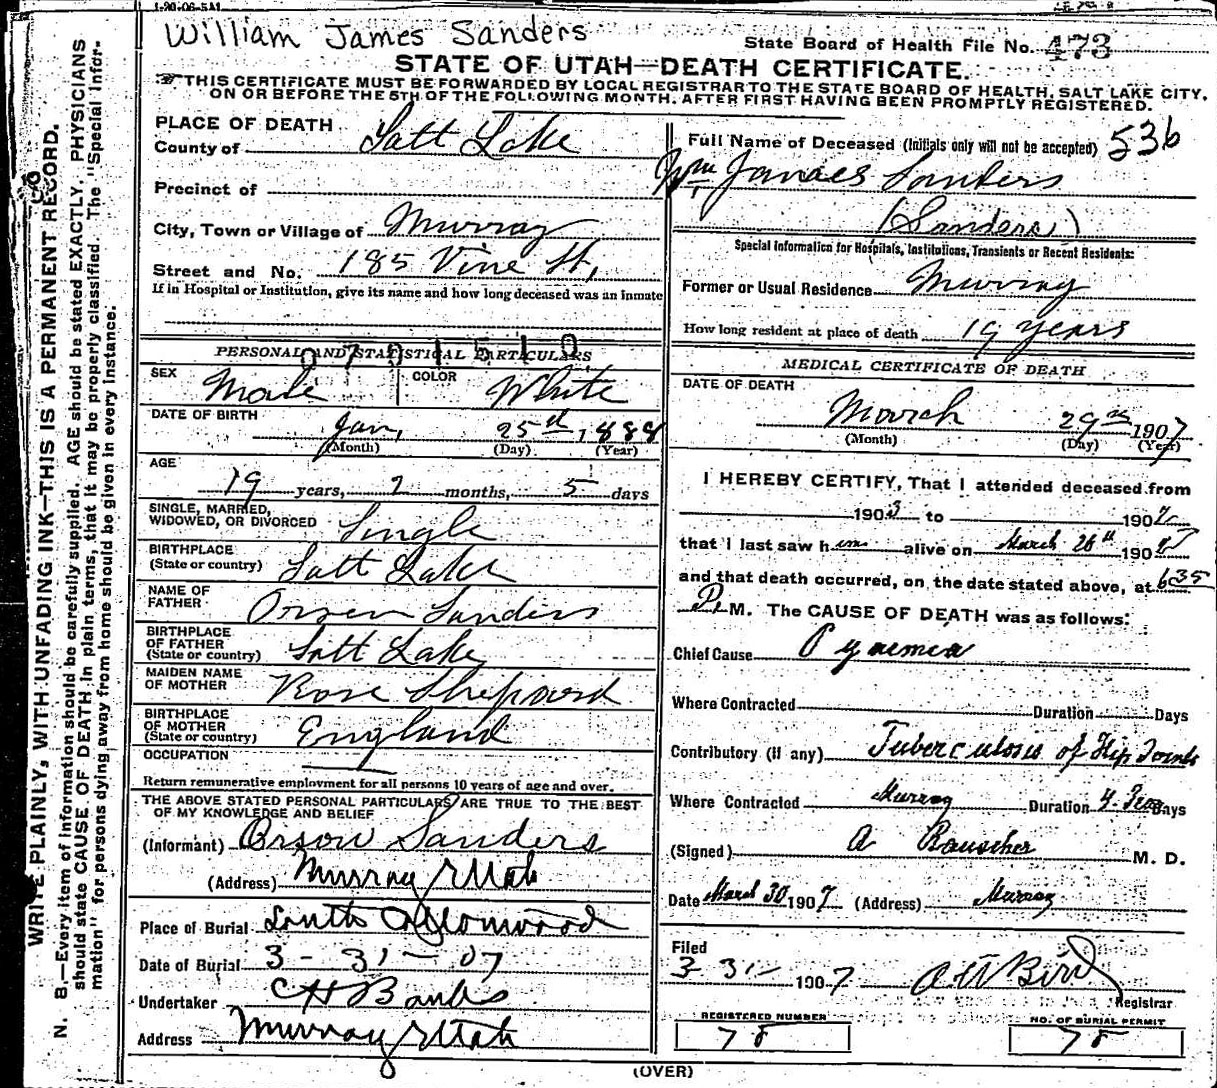 1-20-06-5M
William James Sanders
State Board of Health File No. 473
STATE OF UTAH—DEATH CERTIFICATE.
THIS CERTIFICATE MUST BE FORWARDED BY LOCAL REGISTRAR TO THE STATE BOARD OF HEALTH, SALT LAKE CITY,
ON OR BEFORE THE 5TH OF THE FOLLOWING MONTH, AFTER FIRST HAVING BEEN PROMPTLY REGISTERED.
WRITE PLAINLY, WITH UNFADING INK—THIS IS A PERMANENT RECORD.
N. B.—Every item of information should be carefully supplied. AGE should be stated EXACTLY. PHYSICIANS
should state CAUSE OF DEATH in plain terms, that it may be properly classified. The "Special Infor-
mation" for persons dying away from home should be given in every instance.
PLACE OF DEATH
County of Salt Lake
Precinct of
City, Town or Village of Murray
Street and No. 185 Vine St,
If in Hospital or Institution, give its name and how long deceased was an inmate
PERSONAL AND STATISTICAL PARTICULARS
0701510
SEX Male COLOR White
DATE OF BIRTH Jan, 25th, 1888
(Month) (Day) (Year)
AGE
19 years, 2 months, 5 days
SINGLE, MARRIED,
WIDOWED, OR DIVORCED Single
BIRTHPLACE
(State or country) Salt Lake
NAME OF
FATHER Orson Sanders
BIRTHPLACE
OF FATHER
(State or country) Salt Lake
MAIDEN NAME
OF MOTHER Rose Shepard
BIRTHPLACE
OF MOTHER
(State or country) England
OCCUPATION
Return remunerative employment for all persons 10 years of age and over.
THE ABOVE STATED PERSONAL PARTICULARS ARE TRUE TO THE BEST
OF MY KNOWLEDGE AND BELIEF
(Informant) Orson Sanders
(Address) Murray Utah
Place of Burial South Cottonwood
Date of Burial 3-31-07
Undertaker CH Banks
Address Murray Utah
Full Name of Deceased (Initials only will not be accepted) 536
Wm James Sanders
(Sanders)
Special Information for Hospitals, Institutions, Transients or Recent Residents:
Former or Usual Residence Murray
How long resident at place of death 19 years
MEDICAL CERTIFICATE OF DEATH
DATE OF DEATH
March 29th 1907
(Month) (Day) (Year)
I HEREBY CERTIFY, That I attended deceased from
1903 to 1907
that I last saw him alive on March 28th 1907
and that death occurred, on the date stated above, at 6 35
P. M. The CAUSE OF DEATH was as follows:
Chief Cause Pyaemea
Where Contracted Duration Days
Contributory (if any) Tuberculosis of Hip Joints
Where Contracted Murray Duration 4 Days
(Signed) A Rauscher M. D.
Date March 30 1907 (Address) Murray
Filed
3-31- 1907 Bird
Registrar
REGISTERED NUMBER
78
NO. OF BURIAL PERMIT
78
(OVER)